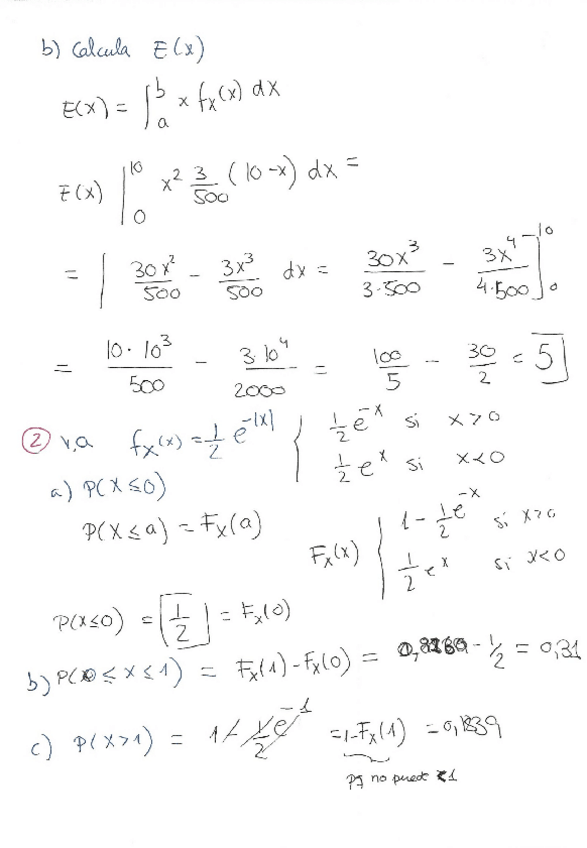 b) Calcula E(x)
E(x) = ∫_a^b x f_X(x) dx
E(x) ∫_0^10 x² 3/500 (10-x) dx =
= ∫ 30x²/500 - 3x³/500 dx = 30x³/3·500 - 3x⁴/4·500 ]_0^10
= 10·10³/500 - 3·10⁴/2000 = 100/5 - 30/2 = 5
② v,a f_X(x) = 1/2 e^-|x| { 1/2 e^-x si x>0
1/2 e^x si x<0
a) P(X≤0)
P(X≤a) = F_X(a)
F_X(x) { 1 - 1/2 e^-x si x>0
1/2 e^x si x<0
P(x≤0) = 1/2 = F_X(0)
b) P(0≤x≤1) = F_X(1) - F_X(0) = - 1/2 = 0,31
c) P(X>1) = 1 - 1/2 e^-1 = 1-F_X(1) = 0,1839
no <1